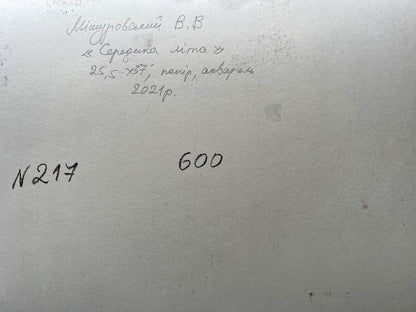 Мішуровський В.В
« Середина літа »
25,5 х37, папір, акварель
2021р.
N 217 600